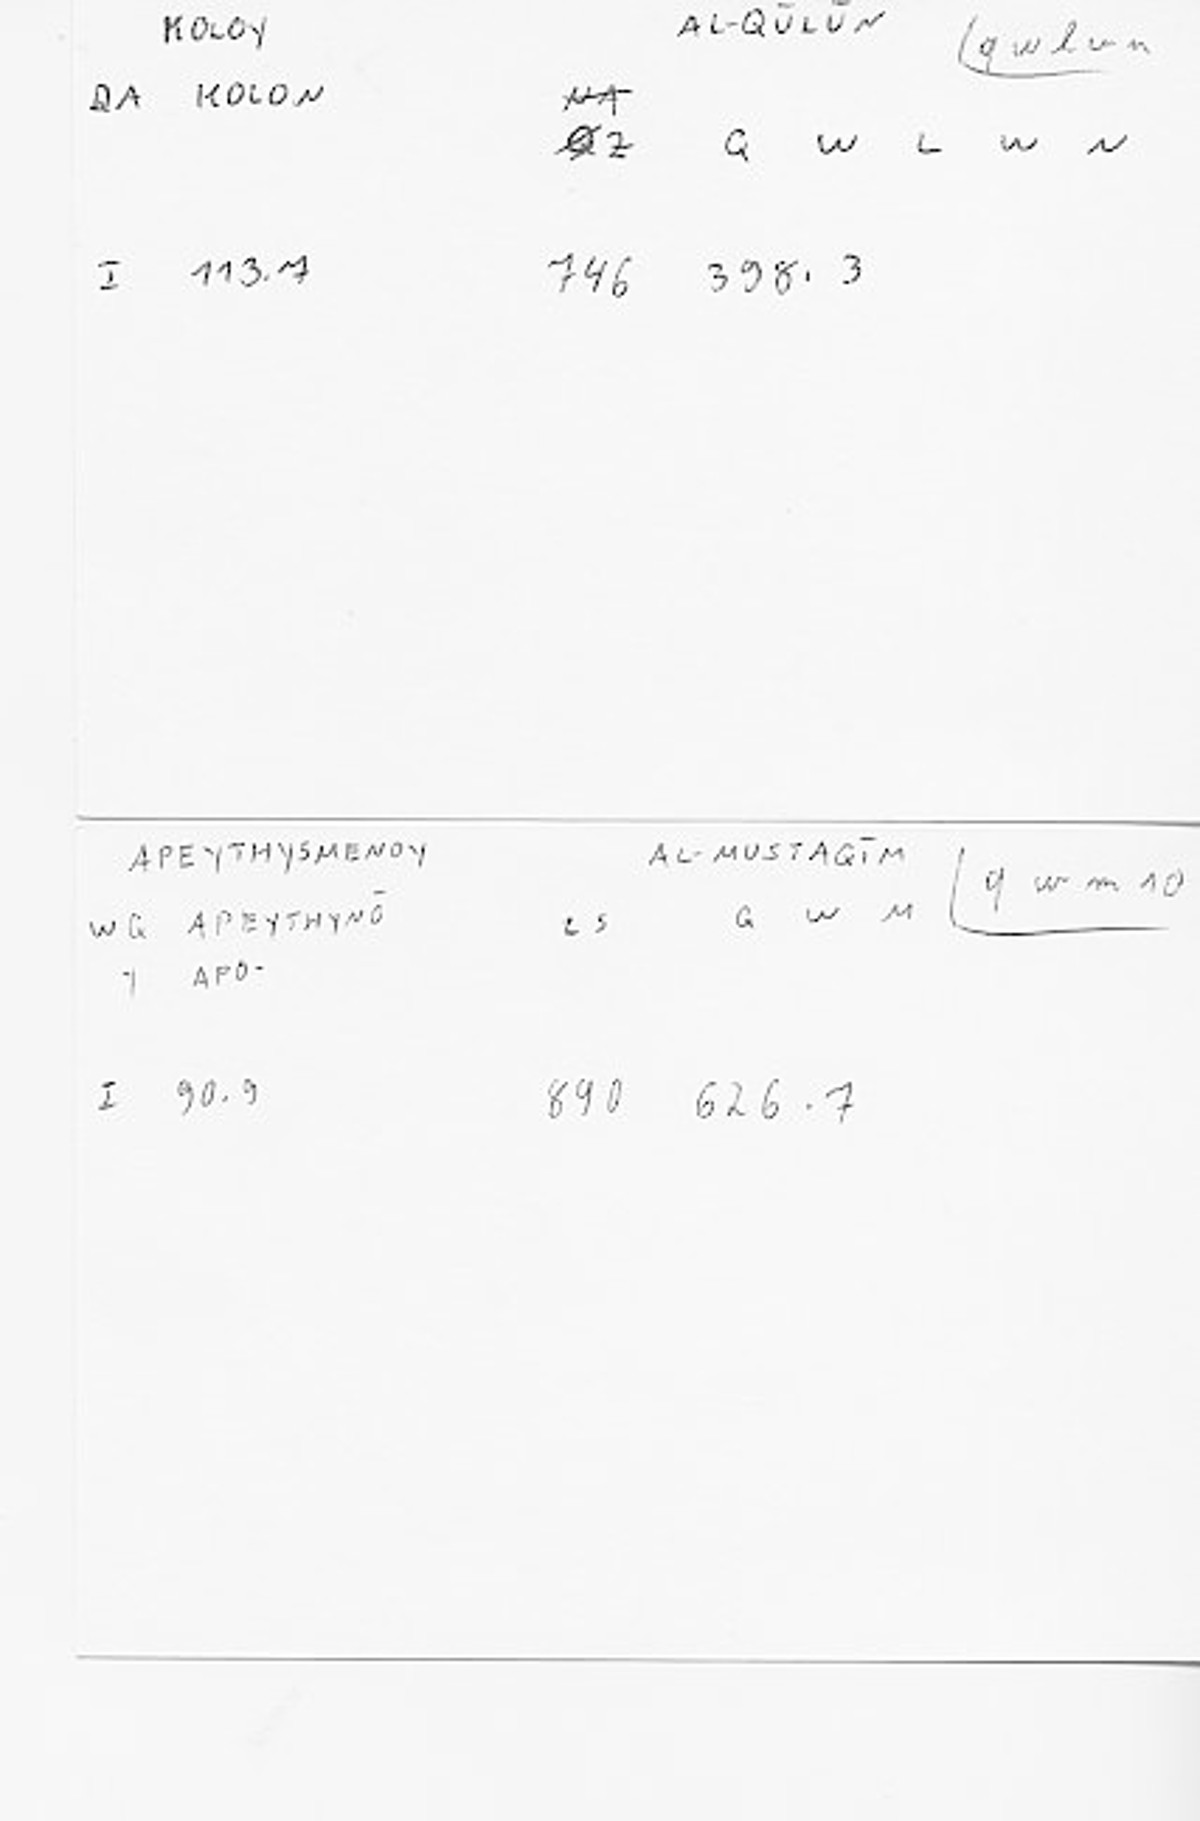 KOLOY AL-QŪLŪN qwlwn
QA KOLON NA
Z Q W L W N
I 113.7 746 398.3
APEYTHYSMENOY AL-MUSTAQĪM q w m 10
WQ APEYTHYNŌ ES Q W M
7 APO-
I 90.9 890 626.7